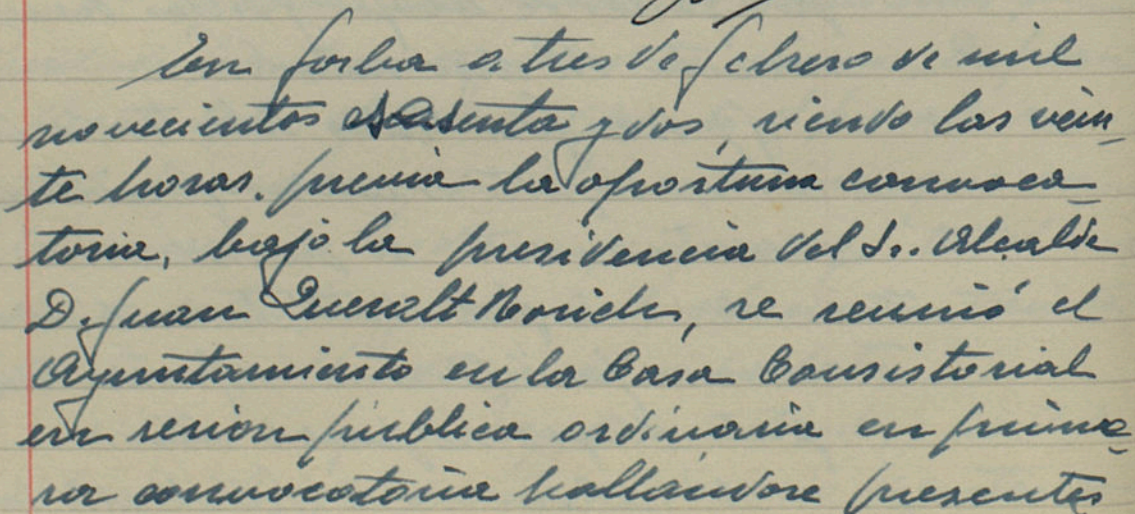 En Jorba a tres de febrero de mil
novecientos sesenta y dos, siendo las vein-
te horas, previa la oportuna convoca-
toria, bajo la presidencia del Sr. Alcalde
D. Juan Queralt Rosich, se reunió el
Ayuntamiento en la Casa Consistorial
en sesion pública ordinaria en prime-
ra convocatoria hallándose presentes